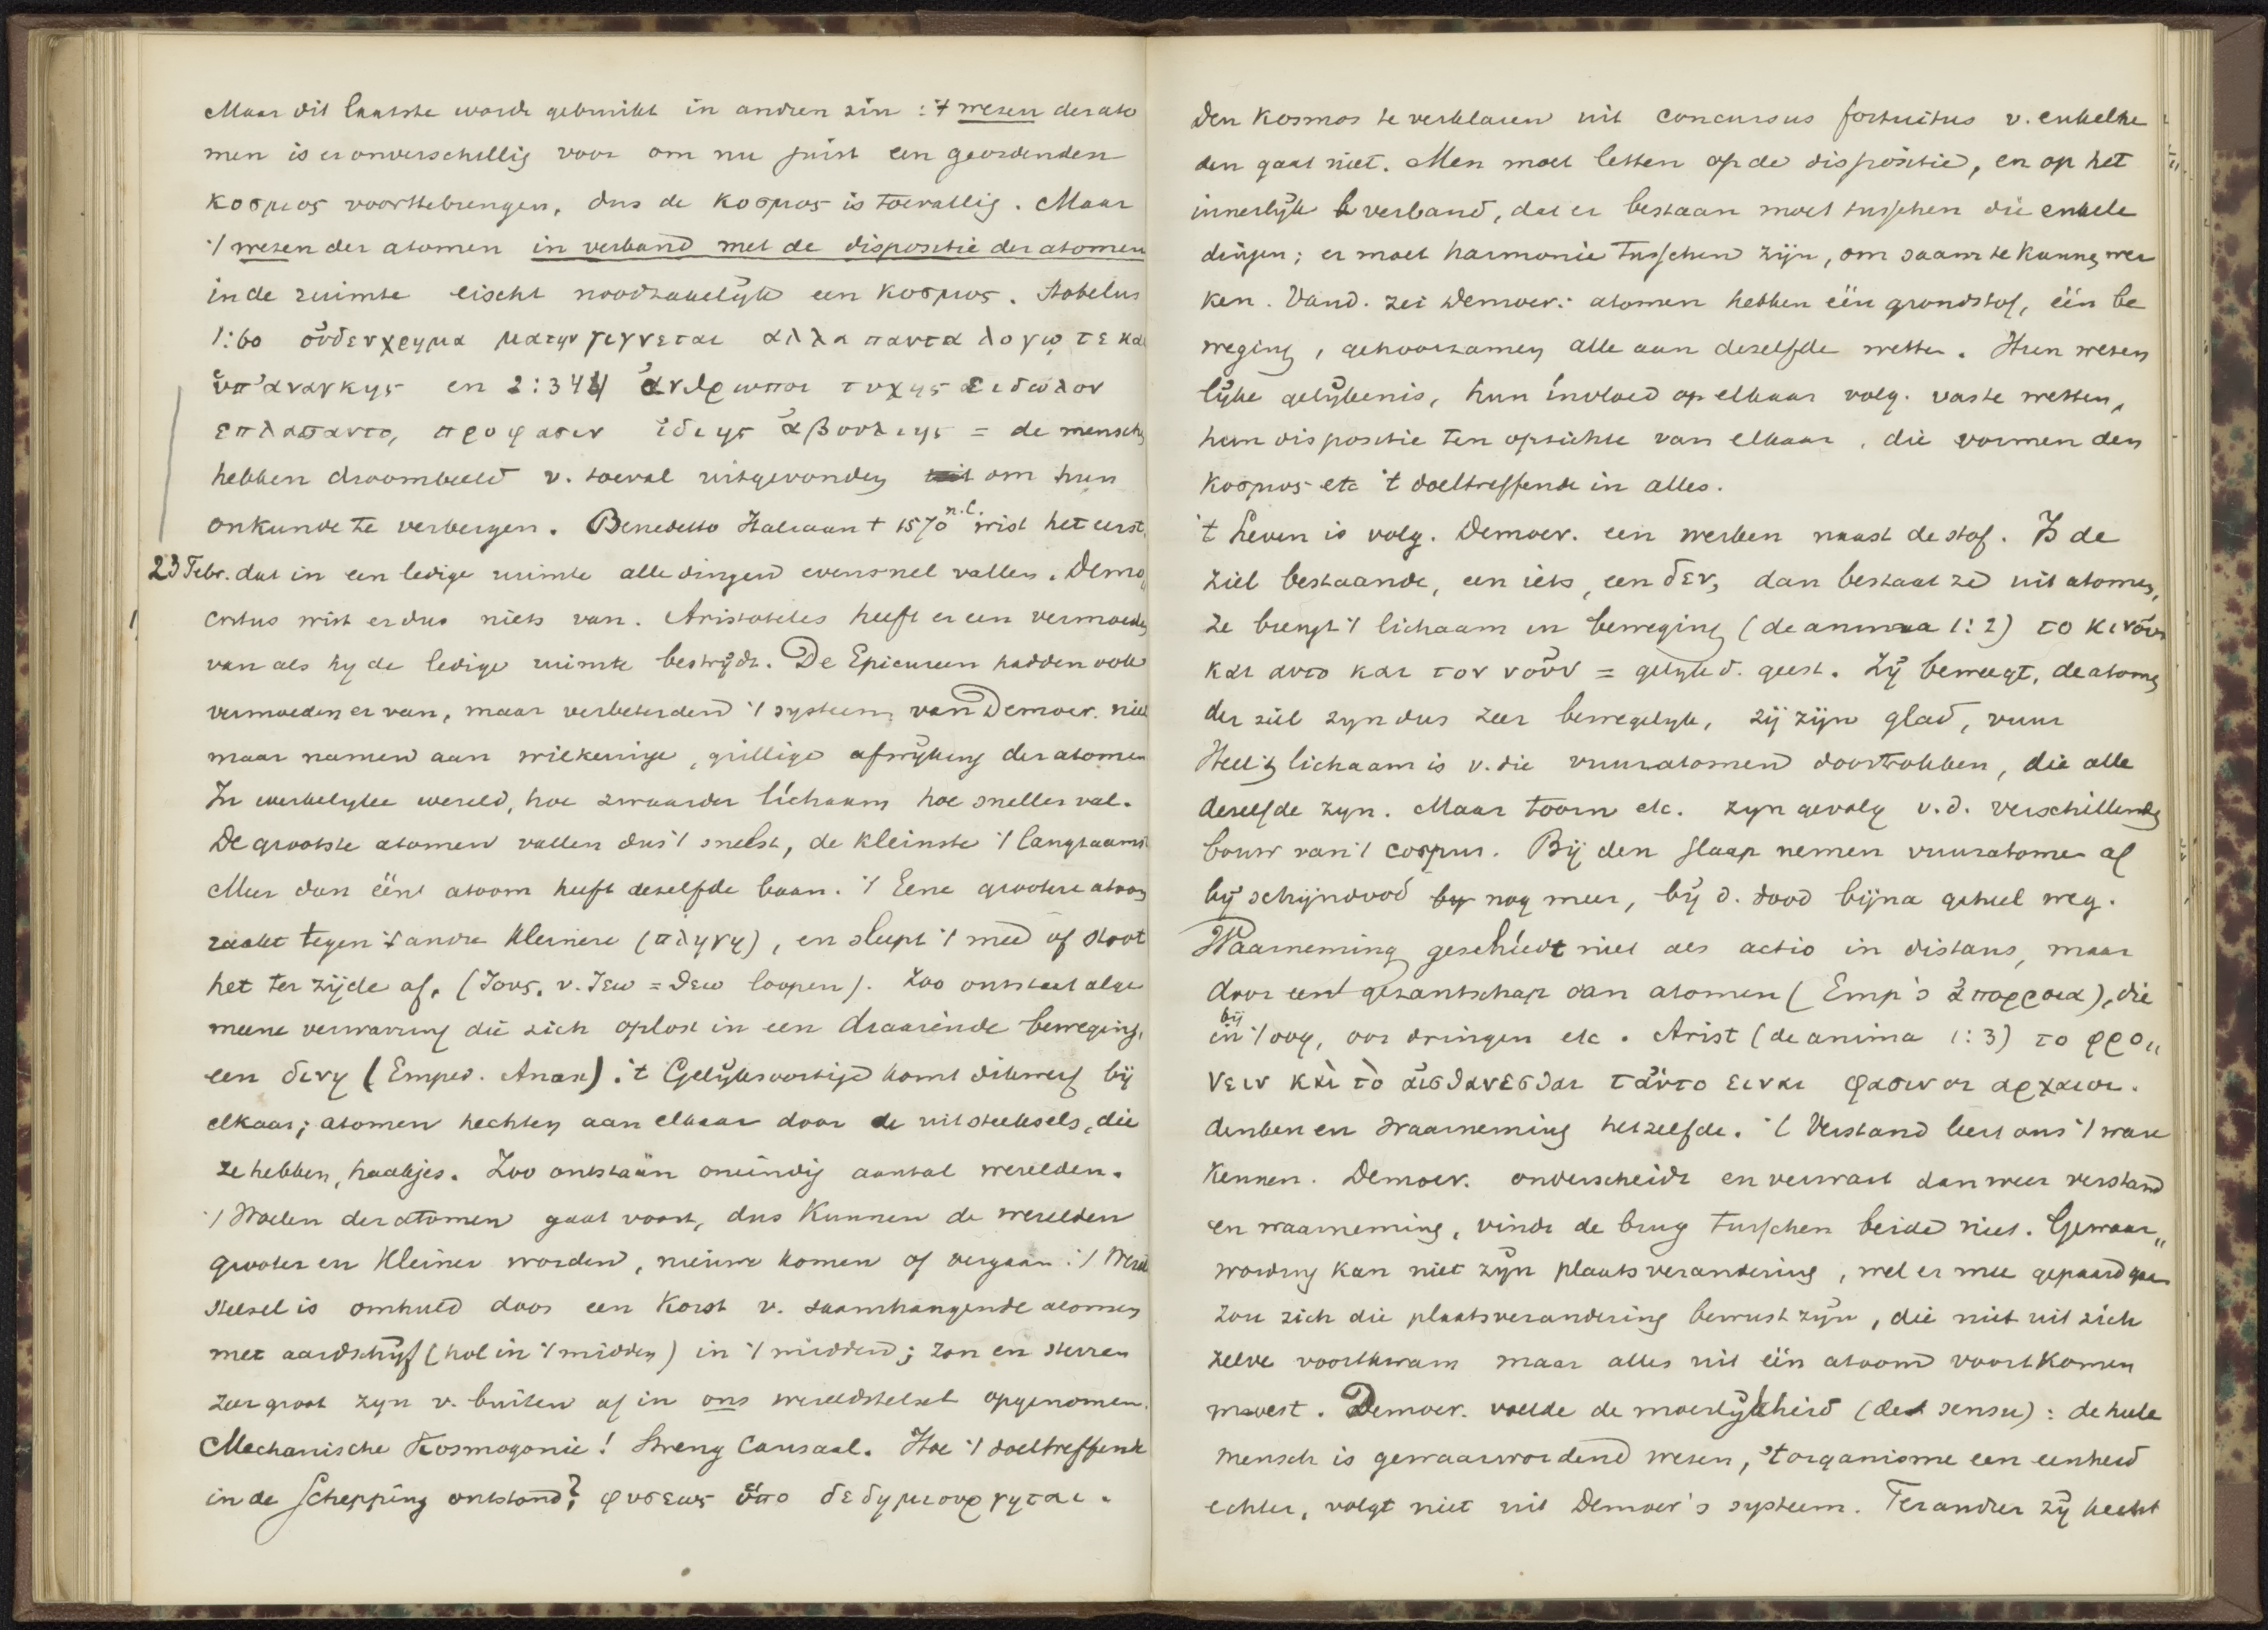 Maar dit laatste wordt gebruikt in andren zin : 't wezen der ato
men is er onverschillig voor om nu juist een geordenden
κοσμος voorttebrengen, dus de κοσμος is toevallig. Maar
't wezen der atomen in verband met de dispositie der atomen
in de ruimte eischt noodzakelijk een κοσμος. Stobeus
1:60 οὐδεν χρημα ματην γιγνεται αλλα παντα λογῳ τε και
ὑπ' αναγκης en 2:344 ἀνθρωποι τυχης ειδωλον
επλασαντο, προφασιν ἰδιης ἀβουλιης = de menschen
hebben droombeeld v. toeval uitgevonden om hun
onkunde te verbergen. Benedetto Italiaan + 1570 n.C. wist het eerst
23 Febr. dat in een ledige ruimte alle dingen evensnel vallen. Demo„
critus wist er dus niets van. Aristoteles heeft er een vermoeden
van als hy de ledige ruimte bestrijdt. De Epicureen hadden ook
vermoeden er van, maar verbeterden 't systeem van Democr. niet
maar namen aan willekeurige, grillige afwijking der atomen
In werkelyke wereld, hoe zwaarder lichaam hoe sneller val.
De grootste atomen vallen dus 't snelst, de kleinste 't langzaamst
Meer dan één atoom heeft dezelfde baan. 't Eene grootere atoom
raakt tegen 't andre kleinere (πληγη), en sleept 't meê of stoot
het ter zijde af. (θους. v. θεω = θεω loopen). Zoo ontstaat alge
meene verwarring die zich oplost in een draaiende beweging,
een δινη (Emped. Anax). 't Gelijksoortige komt dikwerf bij
elkaar; atomen hechten aan elkaar door de uitsteeksels, die
ze hebben, haakjes. Zoo ontstaan oneindig aantal werelden.
't Woelen der atomen gaat voort, dus kunnen de werelden
grooter en kleiner worden, nieuwe komen of vergaan. 't Wereld
stelsel is omhuld door een korst v. saamhangende atomen
met aardschijf (hol in 't midden) in 't midden; zon en sterren
zeer groot zyn v. buiten af in ons wereldstelsel opgenomen.
Mechanische Kosmogonie! Streng Causaal. Hoe 't doeltreffende
in de Schepping ontstond? φυσεως ὑπο δεδημιουργηται.
Den Kosmos te verklaren uit concursus fortuitus v. enkelhe
den gaat niet. Men moet letten op de dispositie, en op het
innerlijk verband, dat er bestaan moet tusschen die enkele
dingen; er moet harmonie tusschen zijn, om saam te kunnen wer
ken. Vand. zei Democr.: atomen hebben één grondstof, één be
weging, gehoorzamen alle aan dezelfde wetten. Hun wezen
lijke gelijkenis, hun invloed op elkaar volg. vaste wetten,
hun dispositie ten opzichte van elkaar, die vormen den
κοσμος etc 't doeltreffende in alles.
't Leven is volg. Democr. een werken naast de stof. Is de
ziel bestaande, een iets, een δεν, dan bestaat ze uit atomen,
ze brengt 't lichaam in beweging (de anima 1:2) το κινοῦν
και αυτο και τον νοῦν = gelijk d. geest. Zij beweegt, de atomen
der ziel zyn dus zeer bewegelyk, zij zijn glad, vuur
Heel 't lichaam is v. die vuuratomen doortrokken, die alle
dezelfde zyn. Maar toorn etc. zyn gevolg v.d. verschillende
bouw van 't corpus. Bij den slaap nemen vuuratomen af
bij schijndood nog meer, bij d. dood bijna geheel weg.
Waarneming geschiedt niet als actio in distans, maar
door een gezantschap van atomen (Emp's ἀπορροια), die
bij in 't oog, oor dringen etc. Arist (de anima 1:3) το φρο„
νειν και τὸ αἰσθανεσθαι ταὐτο ειναι φασιν οι αρχαιοι.
denken en waarneming hetzelfde. 't Verstand leert ons 't ware
kennen. Democr. onderscheidt en verwart dan weer verstand
en waarneming, vindt de brug tusschen beide niet. Gewaar„
wording kan niet zijn plaatsverandering, wel er mee gepaard gaan
Zou zich die plaatsverandering bewust zijn, die niet uit zich
zelve voortkwam maar alles uit één atoom voortkomen
moest. Democr. voelde de moeilijkheid (de sensu): de heele
mensch is gewaarwordend wezen, 't organisme een eenheid
echter, volgt niet uit Democr's systeem. Ter andere zij hecht